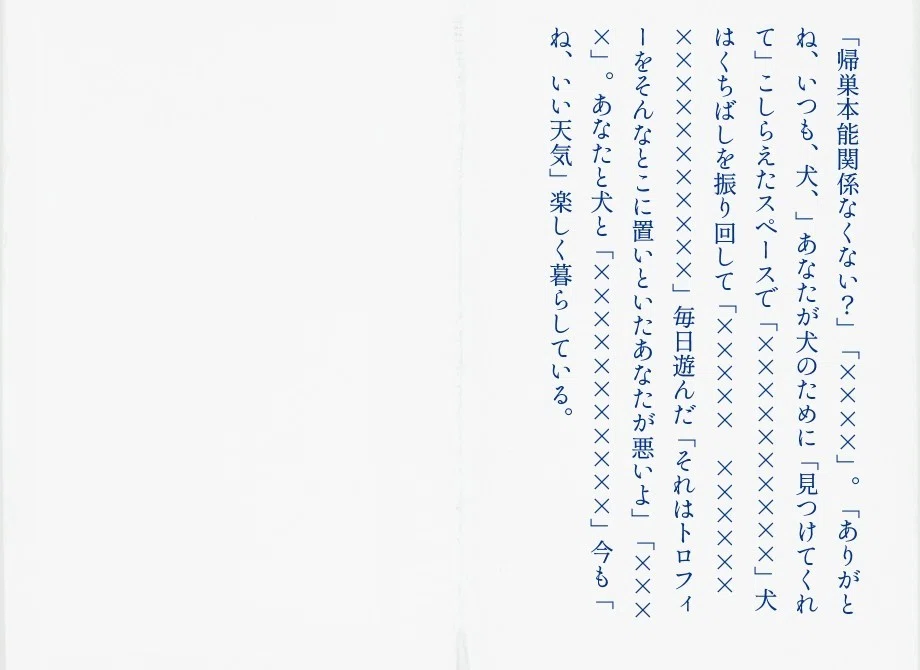 「帰巣本能関係なくない？」「××××」。「ありがと
ね、いつも、犬、」あなたが犬のために「見つけてくれ
て」こしらえたスペースで「××××××××××」犬
はくちばしを振り回して「×××××　××××××
×××××××××××」毎日遊んだ「それはトロフィ
ーをそんなとこに置いといたあなたが悪いよ」「×××
×」。あなたと犬と「×××××××××××」今も「
ね、いい天気」楽しく暮らしている。